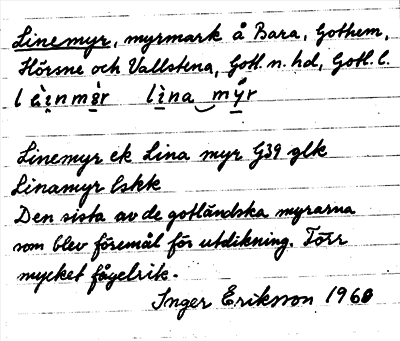 Linemyr, myrmark å Bara, Gothem,
Hörsne och Vallstena, Gotl. n. hd, Gotl. l.
lìna mýr
Linemyr ek Lina myr G39 glk
Linamyr lskk
Den sista av de gotländska myrarna
som blev föremål för utdikning. Förr
mycket fågelrik.
Inger Eriksson 1960